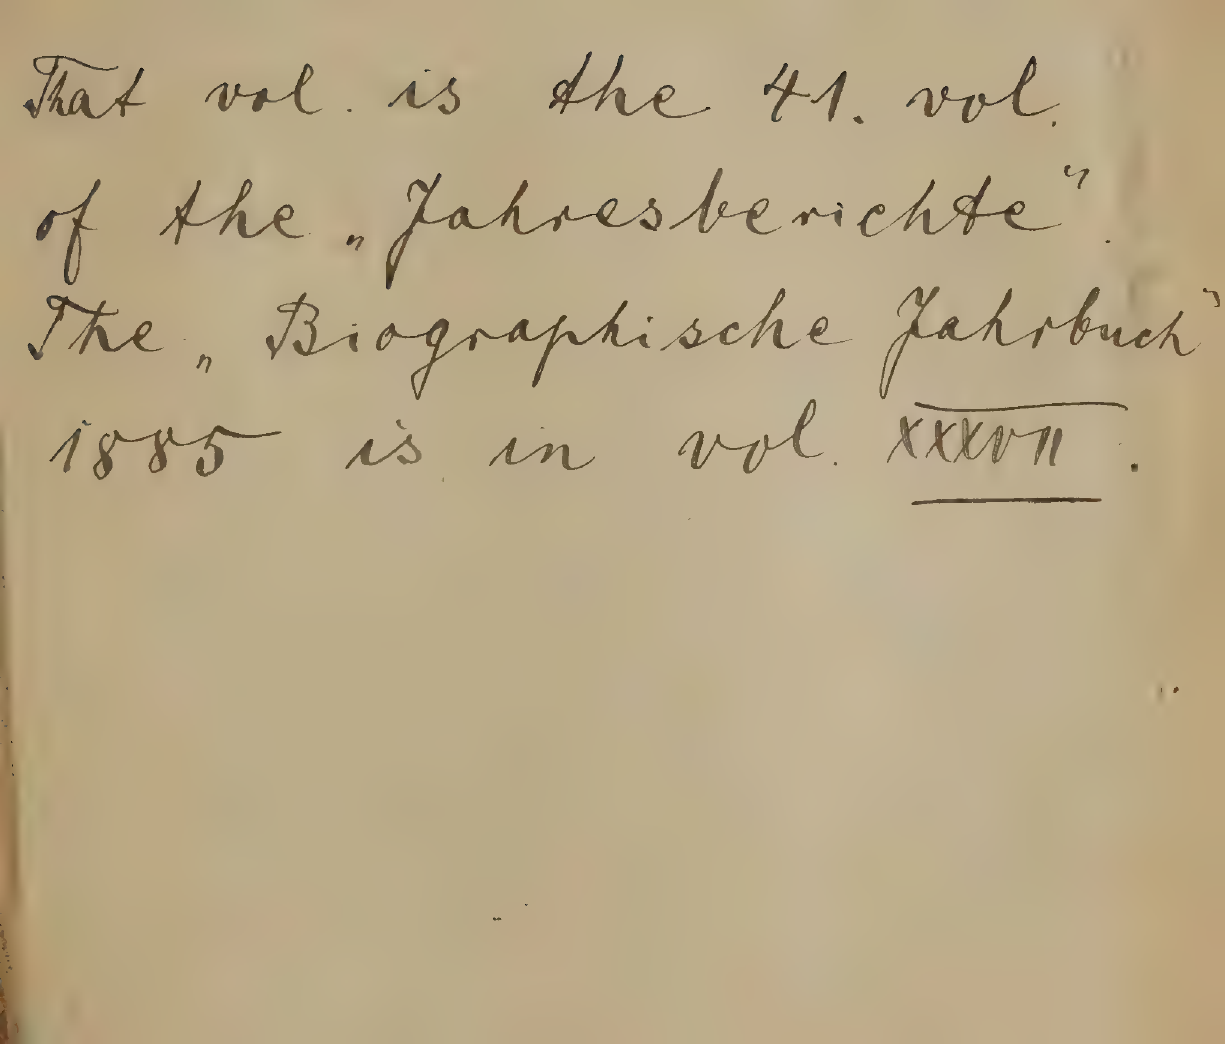 That vol. is the 41. vol.
of the „Jahresberichte".
The „Biographische Jahrbuch"
1885 is in vol. XXXVII.